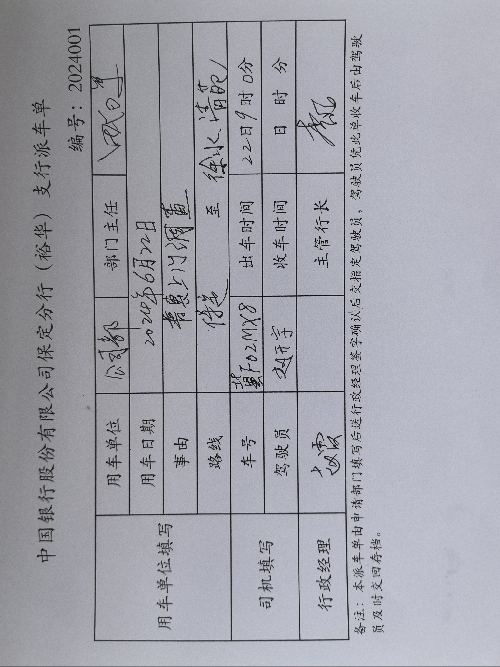 中国银行股份有限公司保定分行（裕华）支行派车单
编号：2024001
用车单位填写 用车单位 公司部 部门主任
用车日期 2024年6月22日
事由 普惠上门调查
路线 保定 至 徐水、清苑
司机填写 车号 冀F02MX8 出车时间 22日9时0分
驾驶员 赵开宇 收车时间 日 时 分
行政经理 主管行长
备注：本派车单由申请部门填写后送行政经理签字确认后交指定驾驶员，驾驶员凭此单收车后由驾驶
员及时交回存档。